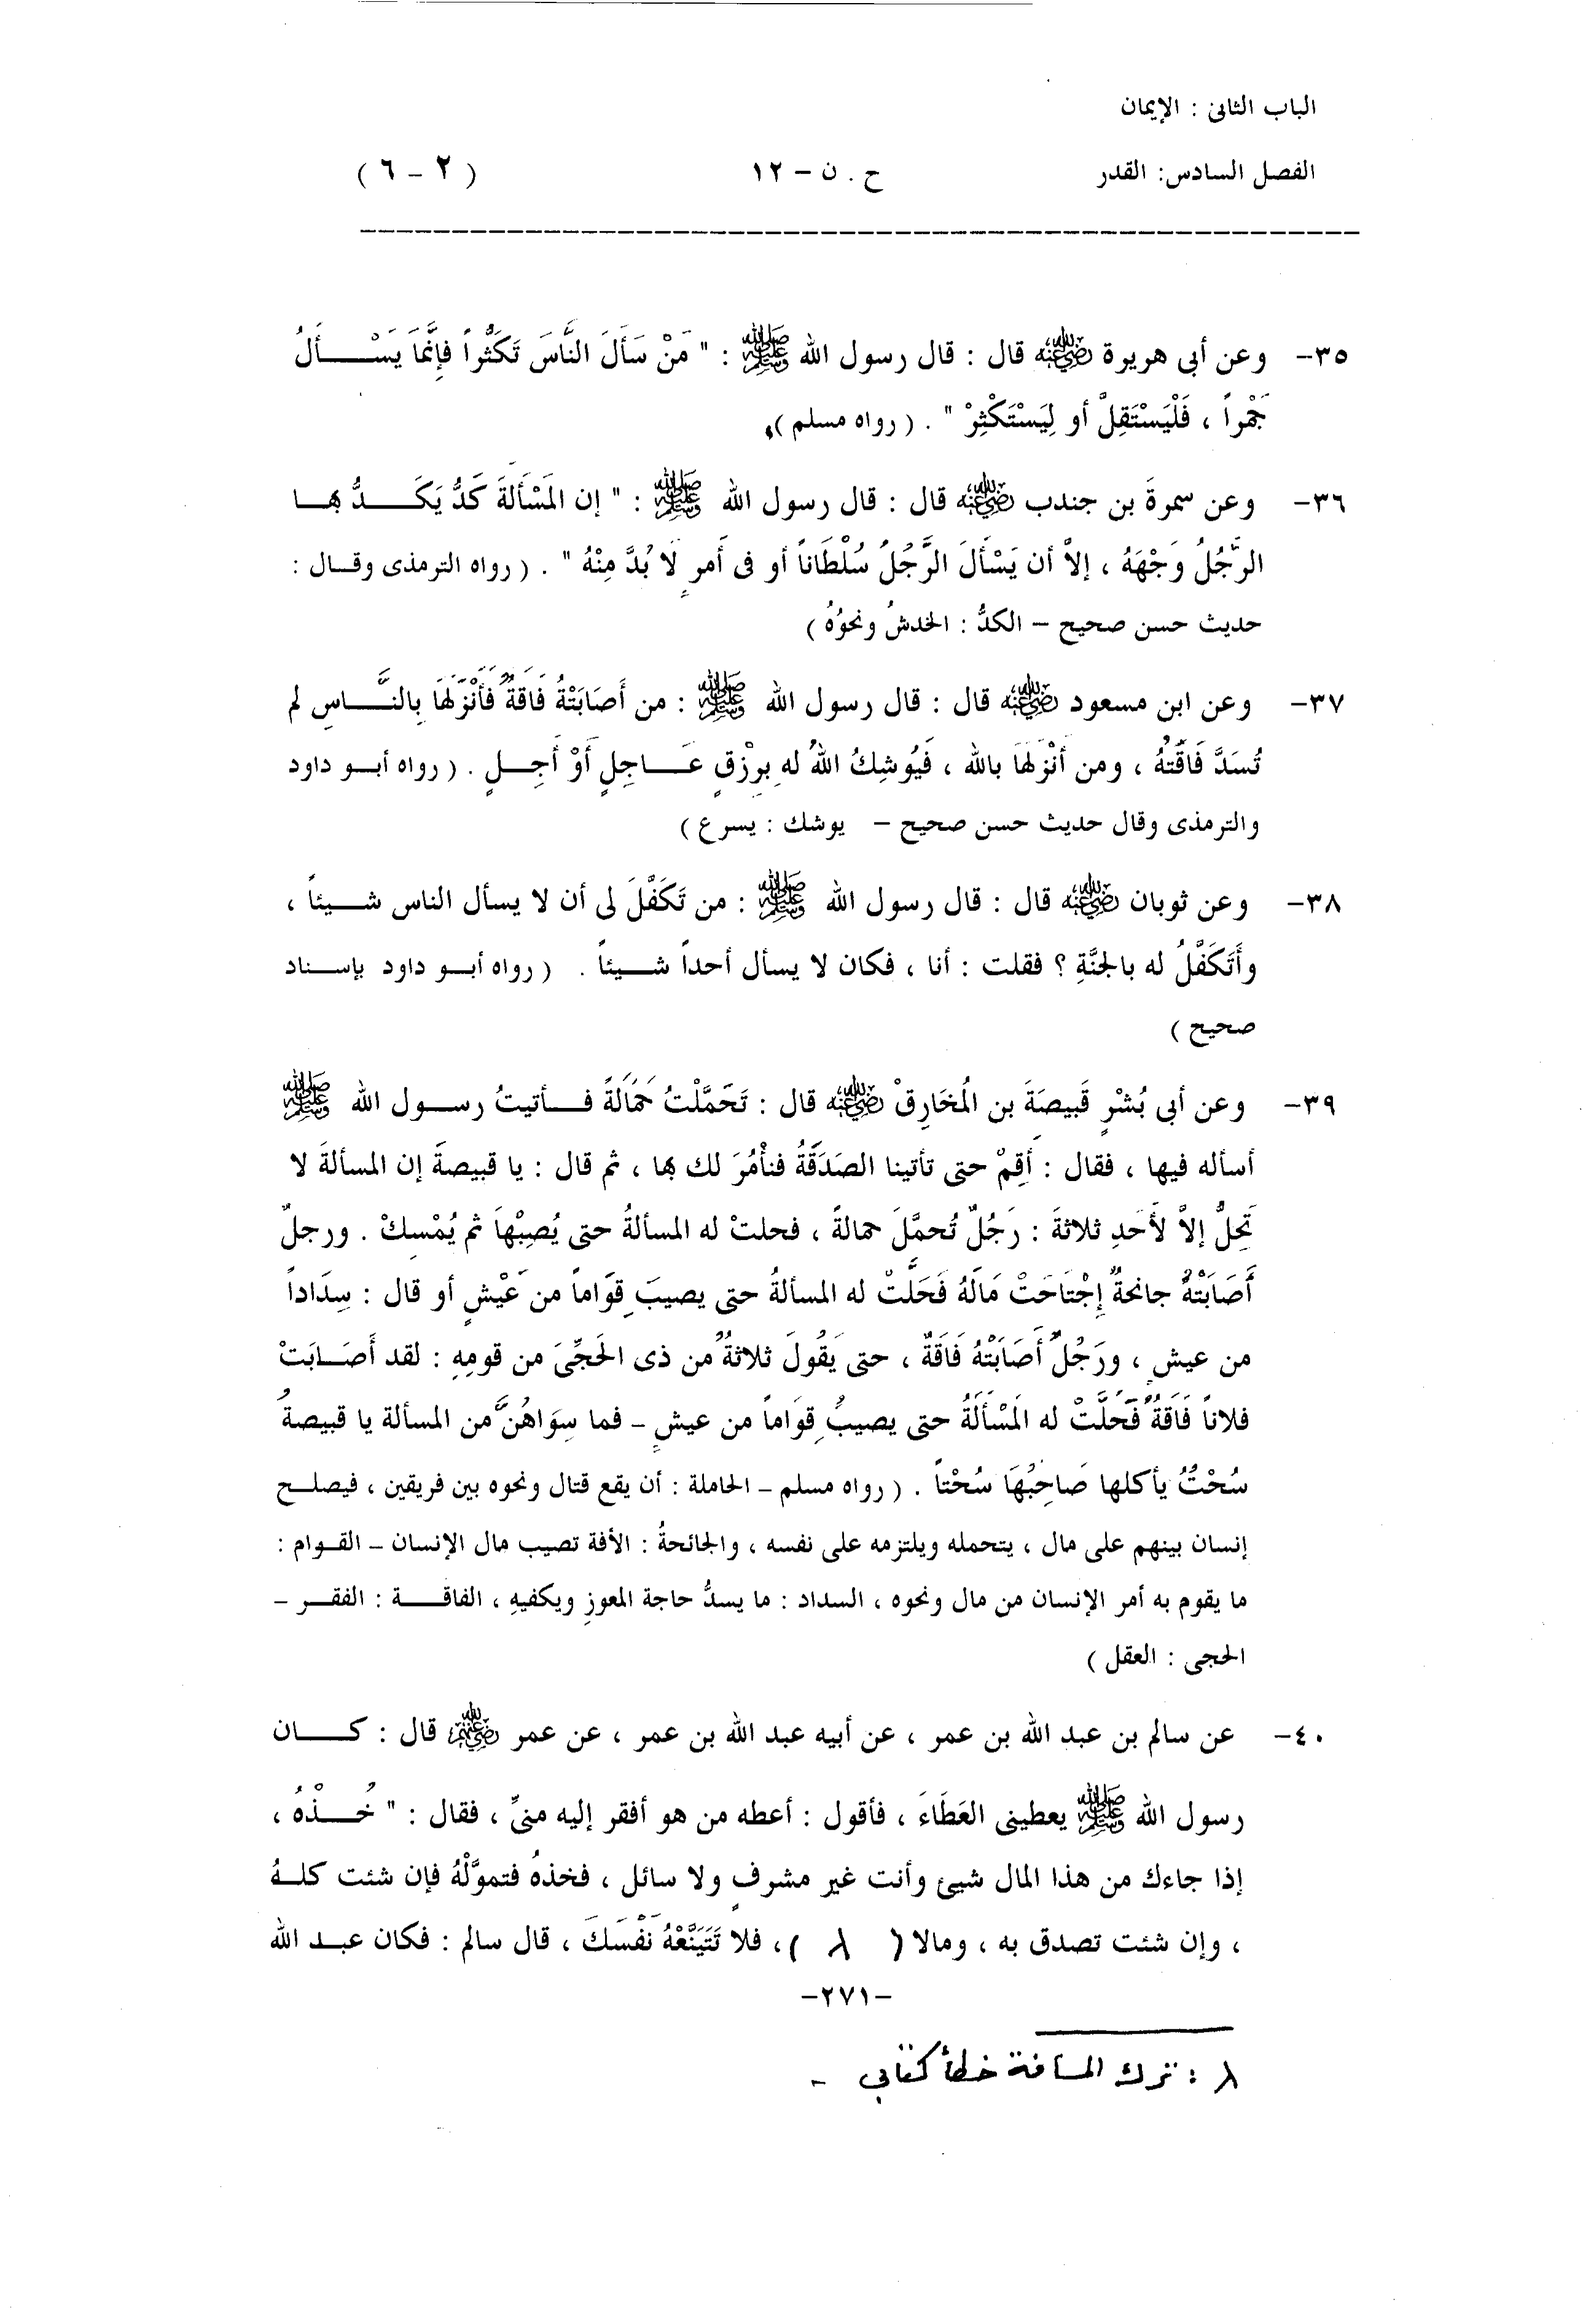 الباب الثانى : الإيمان
الفصل السادس: القدر ح . ن – ١٢ ( ٢ – ٦ )
٣٥- وعن أبى هريرة رضي الله عنه قال : قال رسول الله ﷺ : " مَنْ سَأَلَ النَّاسَ تَكَثُّراً فإِنَّمَا يَسْــــأَلُ
جَمْراً ، فَلْيَسْتَقِلَّ أو لِيَسْتَكْثِرْ " . ( رواه مسلم )
٣٦- وعن سمرةَ بن جندب رضي الله عنه قال : قال رسول الله ﷺ : " إن المَسْأَلةَ كَدُّ يَكَـــدُّ بهـا
الرَّجُلُ وَجْهَهُ ، إلاَّ أن يَسْأَلَ الرَّجُلُ سُلْطَاناً أو فى أَمرٍ لَا بُدَّ مِنْهُ " . ( رواه الترمذى وقـال :
حديث حسن صحيح – الكدُّ : الخدشُ ونحوُهُ )
٣٧- وعن ابن مسعود رضي الله عنه قال : قال رسول الله ﷺ : من أَصَابَتْهُ فَاقةٌ فأَنْزَلهَا بِالنَّـــاسِ لم
تُسَدَّ فَاقَتُهُ ، ومن أنْزَلهَا بالله ، فَيُوشِكُ اللهُ له بِرِزْقٍ عَـــاجِلٍ أَوْ أَجِـــلٍ . ( رواه أبـو داود
والترمذى وقال حديث حسن صحيح – يوشك : يسرع )
٣٨- وعن ثوبان رضي الله عنه قال : قال رسول الله ﷺ : من تَكَفَّلَ لى أن لا يسأل الناس شـيئاً ،
وأَتَكَفَّلُ له بالجنَّةِ ؟ فقلت : أنا ، فكان لا يسأل أحداً شـيئاً . ( رواه أبـو داود بإسـناد
صحيح )
٣٩- وعن أبى بُشْرٍ قَبِيصَةَ بن المُخَارِقْ رضي الله عنه قال : تَحَمَّلْتُ حَمَالَةً فـأتيتُ رسـول الله ﷺ
أسأله فيها ، فقال : أَقِمْ حتى تأتينا الصَدَقَةُ فنأْمُرَ لك بها ، ثم قال : يا قبيصةَ إن المسألةَ لا
تَحِلُّ إلاَّ لأَحَدِ ثلاثةَ : رَجُلٌ تُحمَّلَ حمالةً ، فحلتْ له المسألةُ حتى يُصِبْهَا ثم يُمْسِكْ . ورجلٌ
أَصَابَتْهُ جانحةٌ إِجْتَاحَتْ مَالَهُ فَحَلَّتْ له المسألةُ حتى يصيبَ قِوَاماً من عَيْشٍ أو قال : سِدَاداً
من عيش ، ورَجُلٌ أَصَابَتْهُ فَاقَةٌ ، حتى يَقُولَ ثلاثةٌ من ذى الحَجِّىَ من قومِهِ : لقد أَصَـابَتْ
فلاناً فَاقَةٌ فَحَلَّتْ له المَسْأَلَةُ حتى يصيبُ قِوَاماً من عيشٍ – فما سِوَاهُنَّ من المسألة يا قبيصةُ
سُحْتُ يأكلها صَاحِبُهَا سُحْتاً . ( رواه مسلم – الحاملة : أن يقع قتال ونحوه بين فريقين ، فيصلـح
إنسان بينهم على مال ، يتحمله ويلتزمه على نفسه ، والجائحةُ : الأفة تصيب مال الإنسان – القـوام :
ما يقوم به أمر الإنسان من مال ونحوه ، السداد : ما يسدُّ حاجة المعوزِ ويكفيهِ ، الفاقـــة : الفقـر –
الحجى : العقل )
٤٠- عن سالم بن عبد الله بن عمر ، عن أبيه عبد الله بن عمر ، عن عمر رضي الله عنهم قال : كـــان
رسول الله ﷺ يعطينى العَطَاءَ ، فأقول : أعطه من هو أفقر إليه منىِّ ، فقال : " خُـــذْهُ ،
إذا جاءك من هذا المال شيئ وأنت غير مشرفٍ ولا سائل ، فخذهُ فتموَّلْهُ فإن شئت كلـهُ
، وإن شئت تصدق به ، ومالا ( λ ) ، فلا تَتَيَّعْهُ نَفْسَكَ ، قال سالم : فكان عبـد الله
-٢٧١-
λ : ترك المسافة خطأ كتابي -